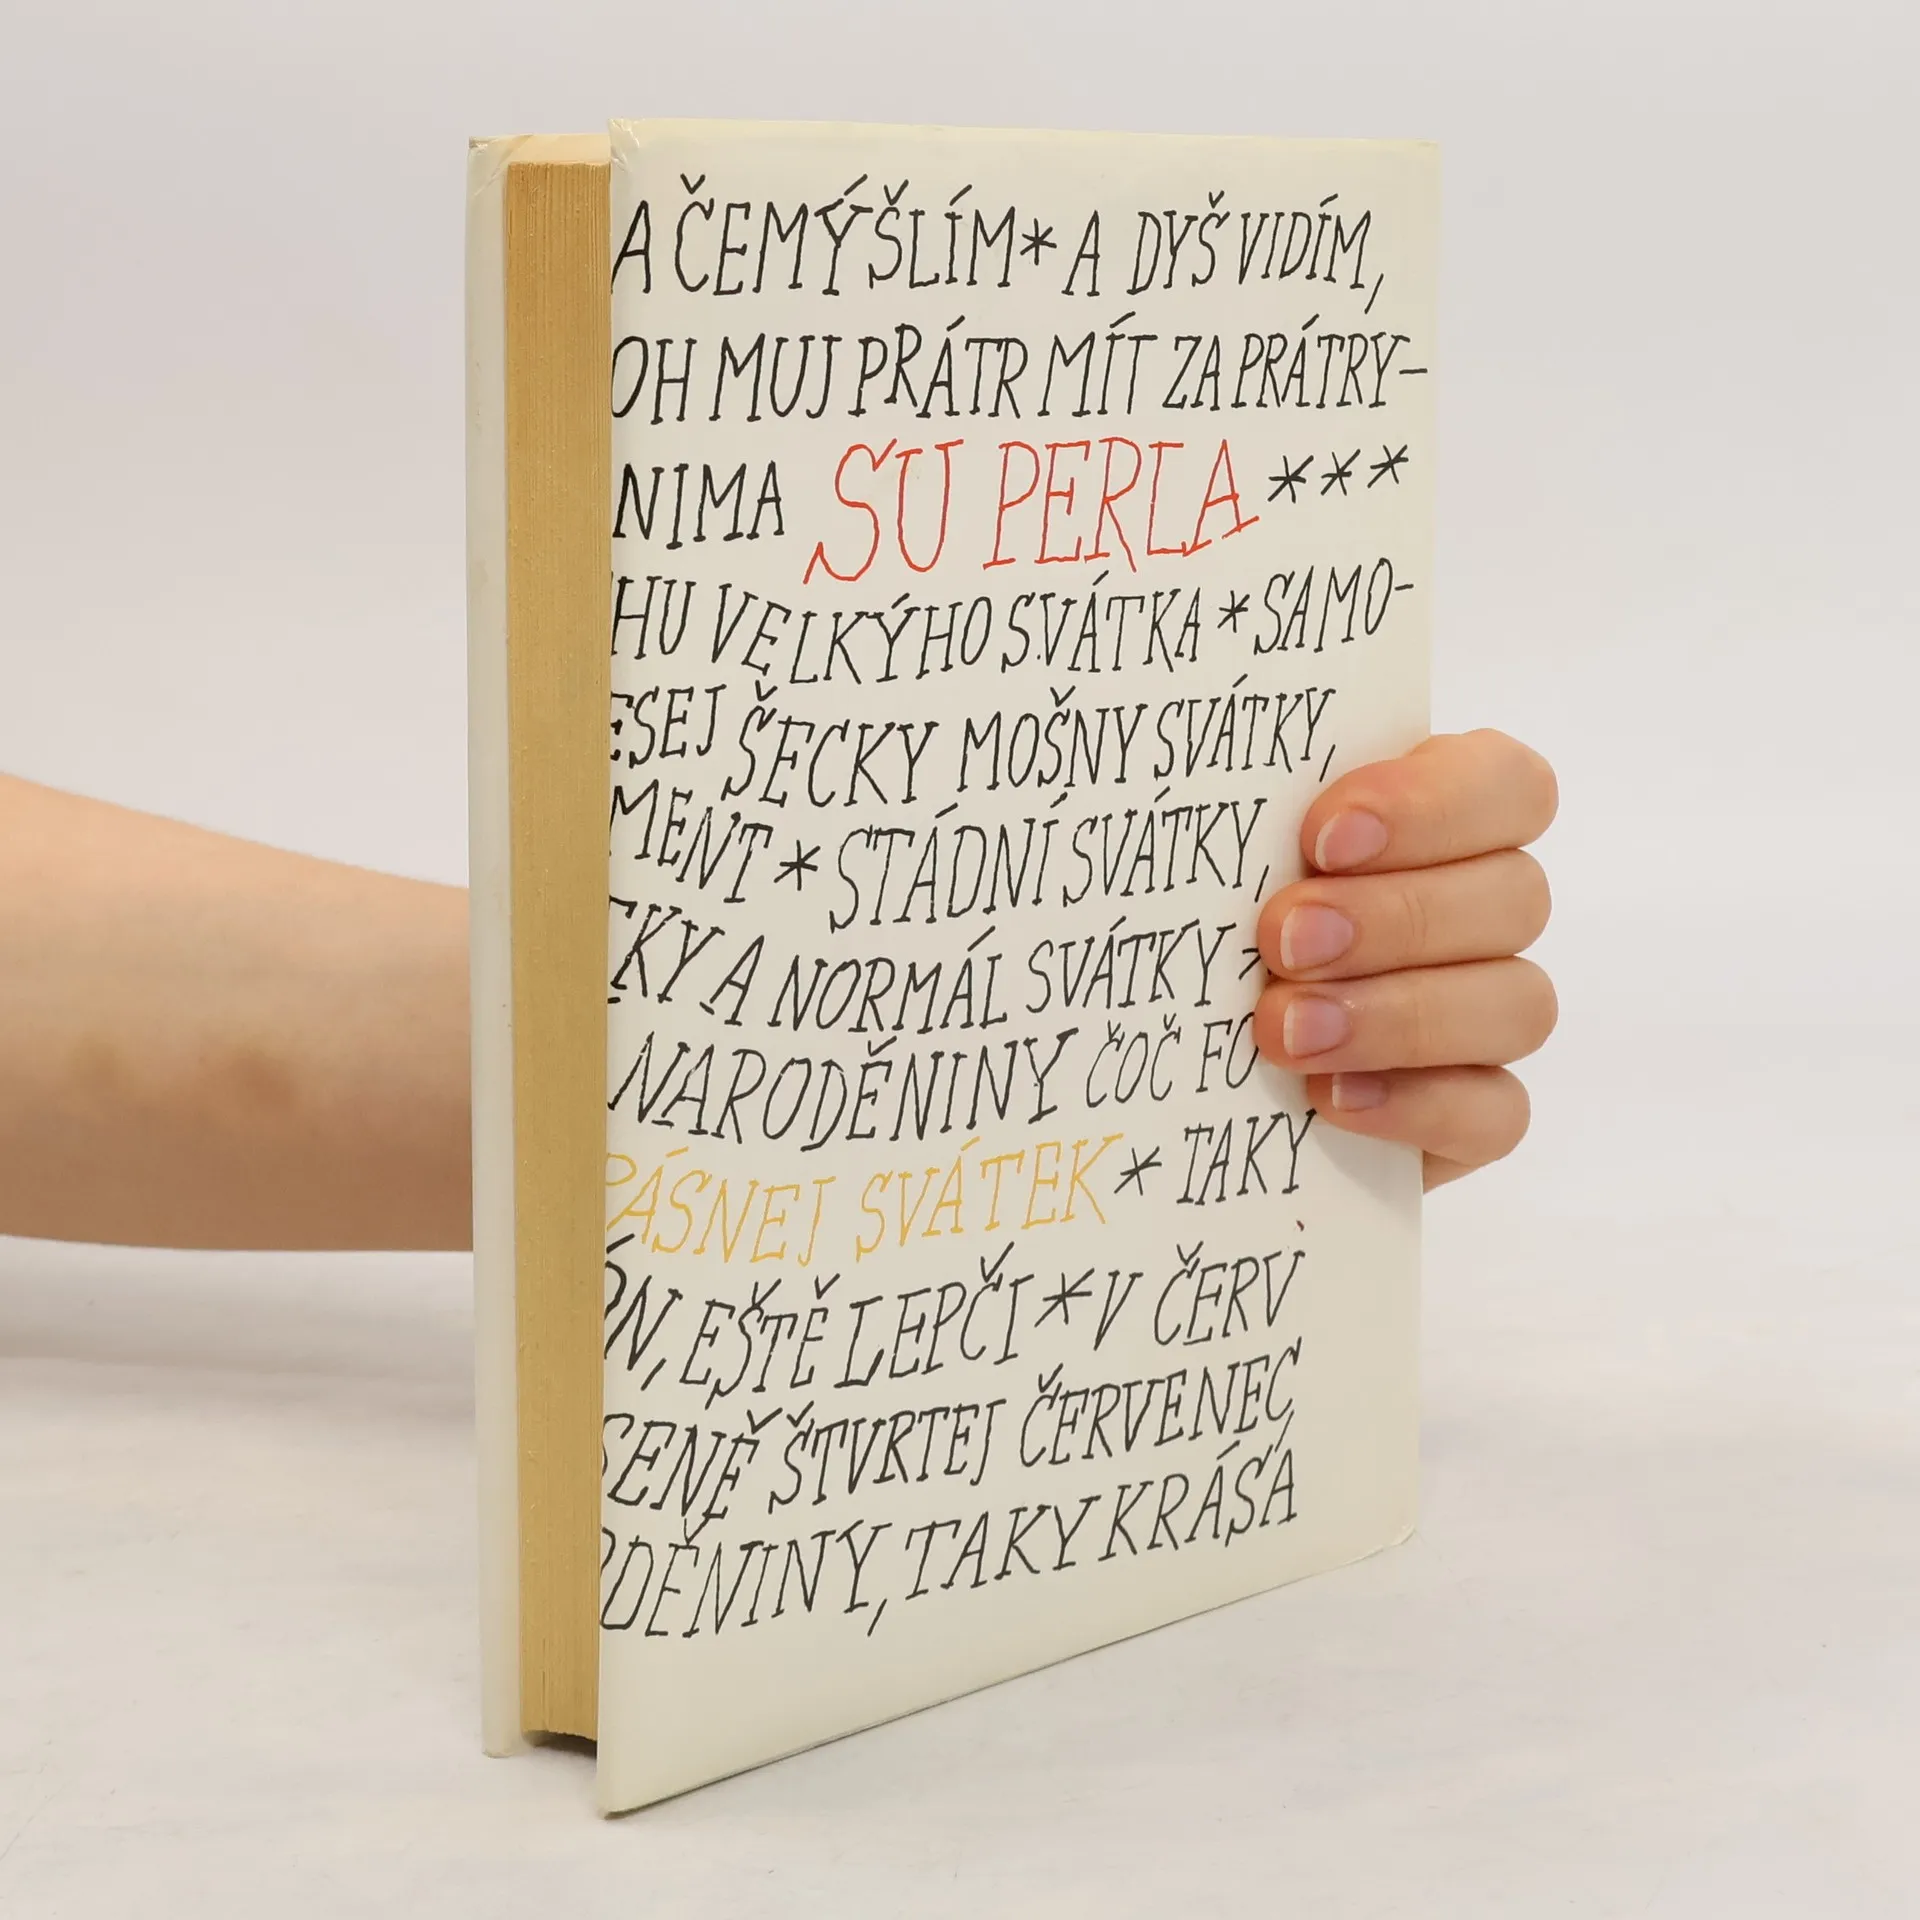 A ČEMÝŠLÍM * A DYŠ VIDÍM,
OH MUJ PŘÁTR MÍT ZA PRÁTRY-
NIMA SU PERLA ***
HU VELKÝHO SVÁTKA * SAMO-
ESEJ ŠECKY MOŠNY SVÁTKY,
MENT * STÁDNÍ SVÁTKY,
KY A NORMÁL SVÁTKY *
NARODĚNINY ČOČ FO
ÁSNEJ SVÁTEK * TAKY
N, EŠTĚ LEPČI * V ČERV
SENĚ ŠTVRTEJ ČERVENEC,
DĚNINY, TAKY KRÁSÁ